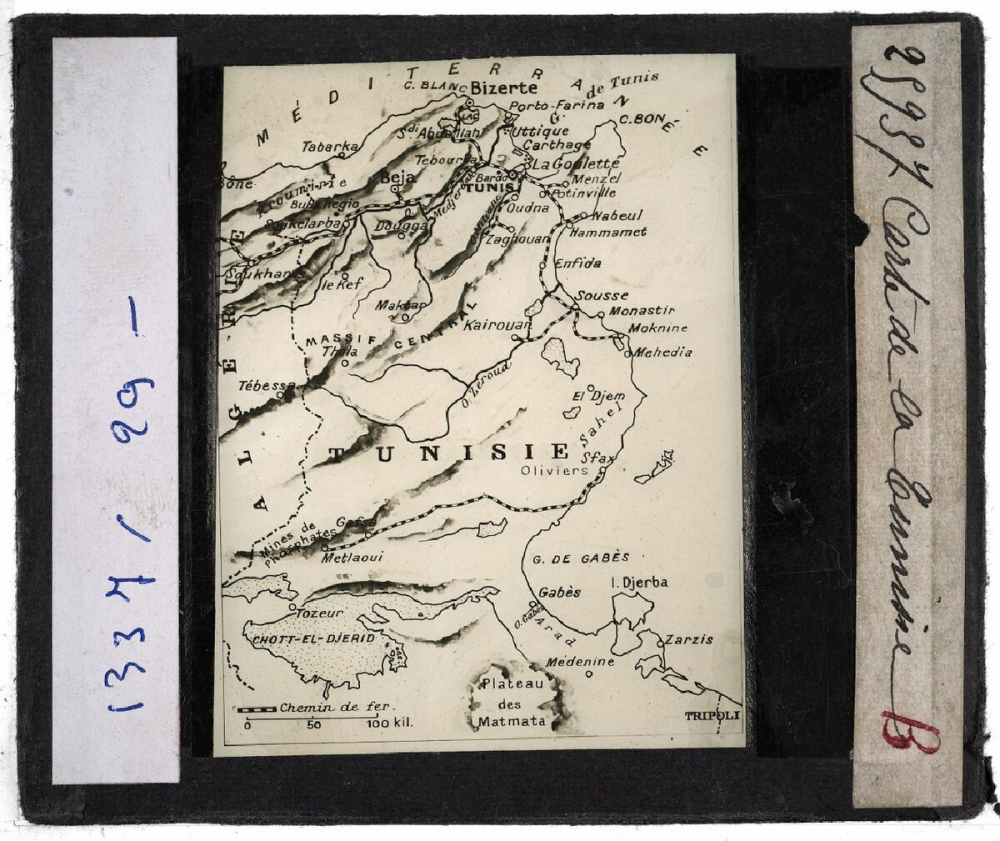 1337 / 29 -
MÉDITERRANÉE
C. BLANC
Bizerte
G. de Tunis
Porto-Farina
C. BON
LAC
Sdi Abdallah
Uttique
Carthage
Tabarka
Tebourba
La Goulette
Bône
Kroumirie
Beja
Bardo
TUNIS
Menzel
Potinville
Bulla Regio
Medjerdah
Oudna
Nabeul
Soukelarba
Dougga
Zaghouan
Hammamet
Soukharas
le Kef
Enfida
Maktar
Sousse
Monastir
Kairouan
Moknine
MASSIF CENTRAL
Thala
Mehedia
Tébessa
O. Zéroud
El Djem
Sahel
ALGÉRIE
TUNISIE
Sfax
Oliviers
Mines de
Phosphates
Gafsa
Metlaoui
G. DE GABÈS
I. Djerba
Gabès
O. Gabès
Arad
Tozeur
CHOTT-EL-DJERID
Zarzis
Médenine
Plateau
des
Matmata
TRIPOLI
Chemin de fer.
0 50 100 kil.
29937 Carte de la Tunisie B